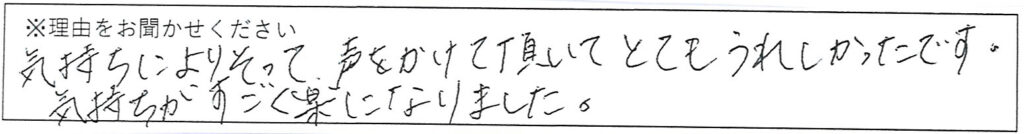 ※理由をお聞かせください
気持ちによりそって、声をかけて頂いてとてもうれしかったです。
気持ちがすごく楽になりました。